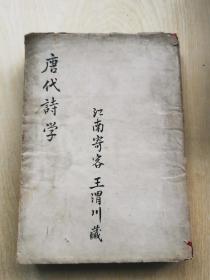 唐代詩学
江南寄客 王渭川藏